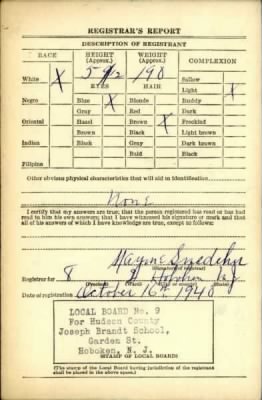 REGISTRAR'S REPORT
DESCRIPTION OF REGISTRANT
RACE HEIGHT (Approx.) WEIGHT (Approx.) COMPLEXION
White X 5 190 Sallow
EYES HAIR Light X
Negro Blue X Blonde Ruddy
Gray Red Dark
Oriental Hazel Brown X Freckled
Brown Black Light brown
Indian Black Gray Dark brown
Bald Black
Filipino
Other obvious physical characteristics that will aid in identification
None
I certify that my answers are true; that the person registered has read or has had
read to him his own answers; that I have witnessed his signature or mark and that
all of his answers of which I have knowledge are true, except as follows:
Wayne
(Signature of registrar)
Registrar for 8 Hoboken N.J.
(Precinct)
Date of registration October 16th 1940
LOCAL BOARD No. 9
For Hudson County
Joseph Brandt School,
Garden St.
Hoboken, N. J.
(STAMP OF LOCAL BOARD)
(The stamp of the Local Board having jurisdiction of the registrant
shall be placed in the above space.)